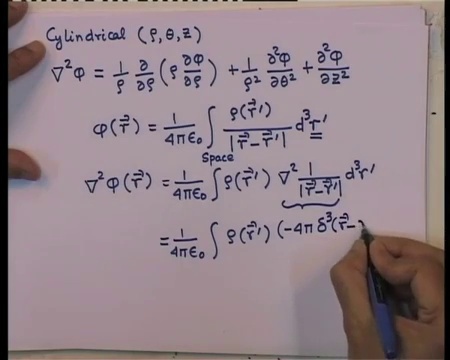 Cylindrical (ρ, θ, z)
∇²φ = 1/ρ ∂/∂ρ (ρ ∂φ/∂ρ) + 1/ρ² ∂²φ/∂θ² + ∂²φ/∂z²
φ(r⃗) = 1/4πε₀ ∫ ρ(r⃗′)/|r⃗-r⃗′| d³r′
Space
∇²φ(r⃗) = 1/4πε₀ ∫ ρ(r⃗′) ∇² 1/|r⃗-r⃗′| d³r′
= 1/4πε₀ ∫ ρ(r⃗′) (-4π δ³(r⃗-